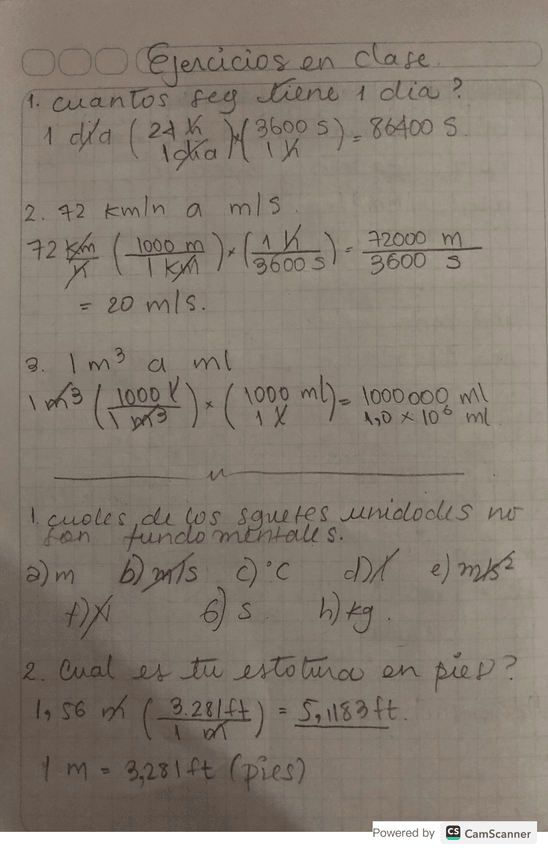 Ejercicios en clase
1. cuantos seg tiene 1 dia?
1 día (24 h / 1 día)(3600 s / 1 h) = 86400 s.
2. 72 km/h a m/s
72 km/h (1000 m / 1 km) × (1 h / 3600 s) = 72000 m / 3600 s
= 20 m/s.
3. 1 m³ a ml
1 m³ (1000 l / 1 m³) × (1000 ml / 1 l) = 1000000 ml
1,0 × 10⁶ ml
1. cuales de los sguetes unidades no
son fundamentales.
a) m b) m/s c) °C d) l e) m/s²
f) N 6) s h) kg.
2. Cual es tu estatura en pies?
1,56 m (3.281 ft / 1 m) = 5,1183 ft.
1 m = 3,281 ft (pies)
Powered by CS CamScanner